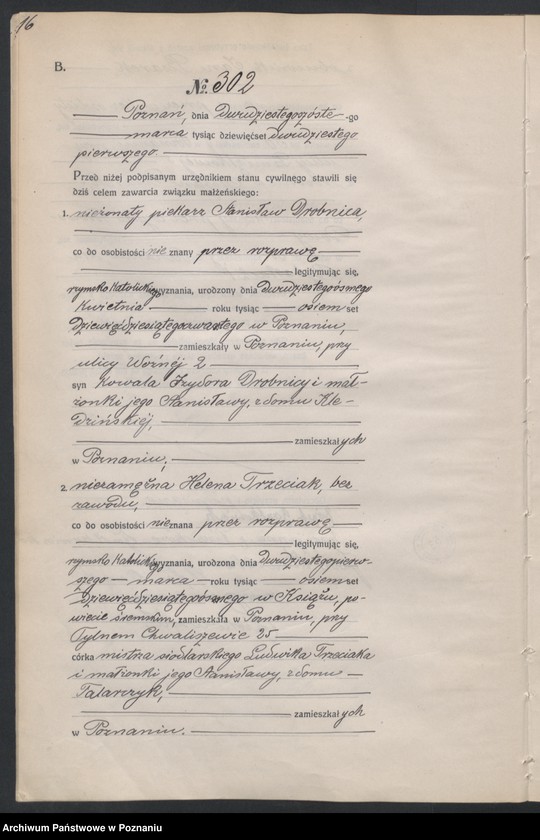 16
B.
№ 302
Poznań, dnia Dwudziestegoszóste-go
marca tysiąc dziewięćset dwudziestego
pierwszego.
Przed niżej podpisanym urzędnikiem stanu cywilnego stawili się
dziś celem zawarcia związku małżeńskiego:
1. nieżonaty piekarz Stanisław Drobnica,
co do osobistości nie znany przez rozprawę
legitymując się,
rzymsko katolickiego wyznania, urodzony dnia Dwudziestegoósmego
Kwietnia roku tysiąc osiemset
Dziewięćdziesiątegoczwartego w Poznaniu,
zamieszkały w Poznaniu, przy
ulicy Woźnéj 2
syn Kowala Izydora Drobnicy i mał-
żonki jego Stanisławy, z domu Kle-
dzińskiéj,
zamieszkałych
w Poznaniu;
2. niezamężna Helena Trzeciak, bez
zawodu,
co do osobistości nieznana przez rozprawę
legitymując się,
rzymsko katolickiego wyznania, urodzona dnia Dwudziestegopierw-
szego marca roku tysiąc osiemset
Dziewięćdziesiątegoósmego w Książu, po-
wiecie śremskim, zamieszkała w Poznaniu, przy
Tylnem Chwaliszewie 25
córka mistrza siodlarskiego Ludwika Trzeciaka
i małżonki jego Stanisławy, z domu
Tatarczyk,
zamieszkałych
w Poznaniu.
Archiwum Państwowe w Poznaniu